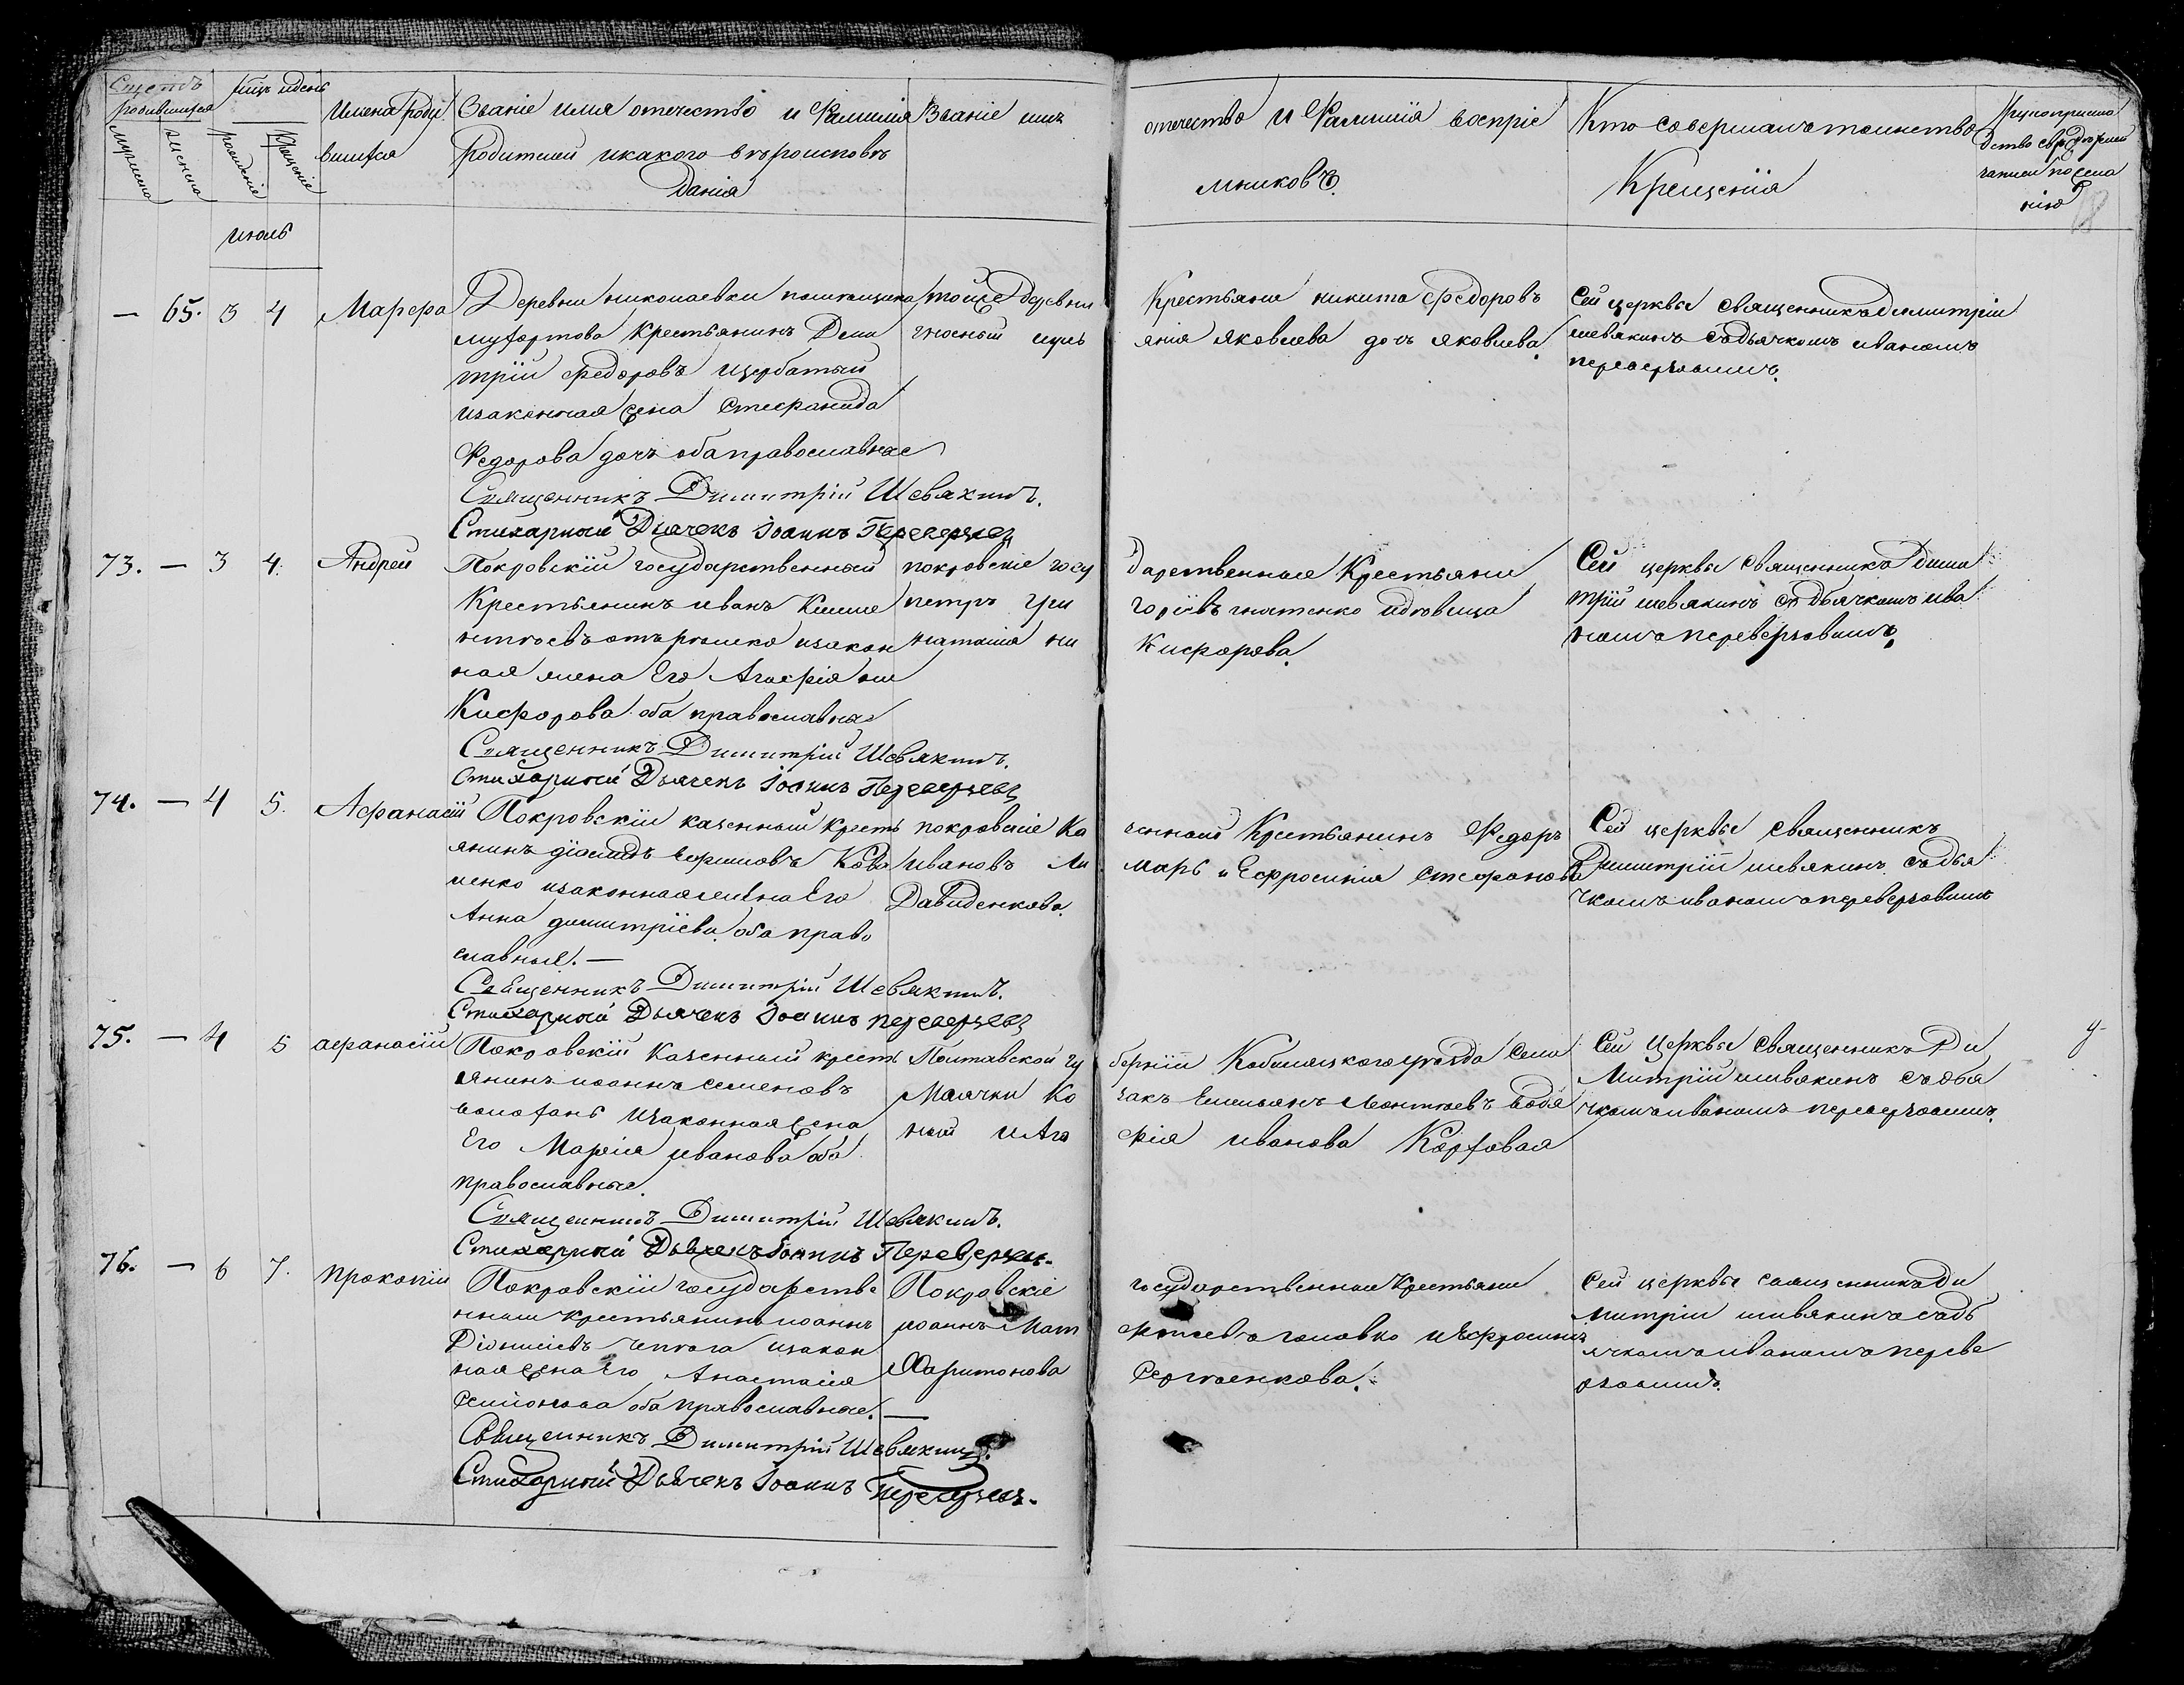 Счетъ родившихся
Мужеска
Женска
мцъ и день
рожденіе
Крещеніе
Имена роди
вшихся
Званіе имя отечество и Фамилія
Родителей и какого вѣроисповѣ
данія
Званіе имя
отечество и Фамилія воспріе
мниковъ.
Кто совершалъ таинство
Крещенія
по жела
нію
18
июль
— 65. 3 4
Марфа
Деревни николаевки помещика
крестьянинъ Дми
трій федоровъ щербатый
изаконная жена Стефанида
Федорова дочь оба православные
Священникъ Димитрій Шевякинъ.
Стихарный Дьячекъ Іоаннъ Переверзевъ
тойже деревни
Крестьяне никита федоровъ
анія яковлева дочь яковлева.
Сей церкви священникъ димитрій
шевякинъ съ дьячкомъ иваномъ
переверзовимъ.
73. — 3 4.
Андрей
Покровскій государственный
Крестьянинъ иванъ Климе
нтіевъ изакон
ная жена Его Агафія ни
Кифорова оба православные
Священникъ Димитрій Шевякинъ.
Стихарный Дьячекъ Іоаннъ Переверзевъ
покровскіе госу
петръ гри
наталія ни
дарственные Крестьяне
горіевъ гнатенко идѣвица
Кифорова.
Сей церкви священникъ дими
трій шевякинъ съ дьячкомъ ива
номъ переверзовимъ.
74. — 4 5.
Афанасій
Покровскій казенный кресть
янинъ ефимовъ Кова
ленко изаконная жена Его
Анна димитріева оба право
славные. —
Священникъ Димитрій Шевякинъ.
Стихарный Дьячекъ Іоаннъ переверзевъ
покровскіе Ка
ивановъ Ли
Давиденкова.
зенный Крестьянинъ Федоръ
марь и Ефросинія Стефанова
Сей церкви священникъ
Димитрій шевякинъ съ дья
чкомъ иваномъ переверзовимъ
75. — 4 5
афанасій
Покровскій Казенный кресть
янинъ иоаннъ семеновъ
изаконная жена
Его Марія иванова оба
православные.
Священникъ Димитрій Шевякинъ.
Стихарный Дьячекъ Іоаннъ Переверзевъ.
Полтавской гу
Маячки Ко
ный и Ага
берніи Кобеляцкого уѣзда села
закъ Емельянъ Леонтіевъ водя
фія иванова Корховая
Сей Церкви Священникъ Ди
Митрій шивякинъ съ дья
чкомъ иваномъ переверзовимъ.
76. — 6 7.
прокопій
Покровскій государстве
нный крестьянинъ иоаннъ
Діонисіевъ изакон
ная жена Его Анастасія
Семіонова оба православные. —
Священникъ Димитрій Шевякинъ.
Стихарный Дьячекъ Іоаннъ Переверзевъ.
Покровскіе
иоаннъ Мат
Харитонова
государственные крестьяне
фтеевъ головко и Ефросинія
Сергѣенкова.
Сей церкви священникъ ди
митрій шивякинъ съ дь
ячкомъ иваномъ переве
рзовимъ.